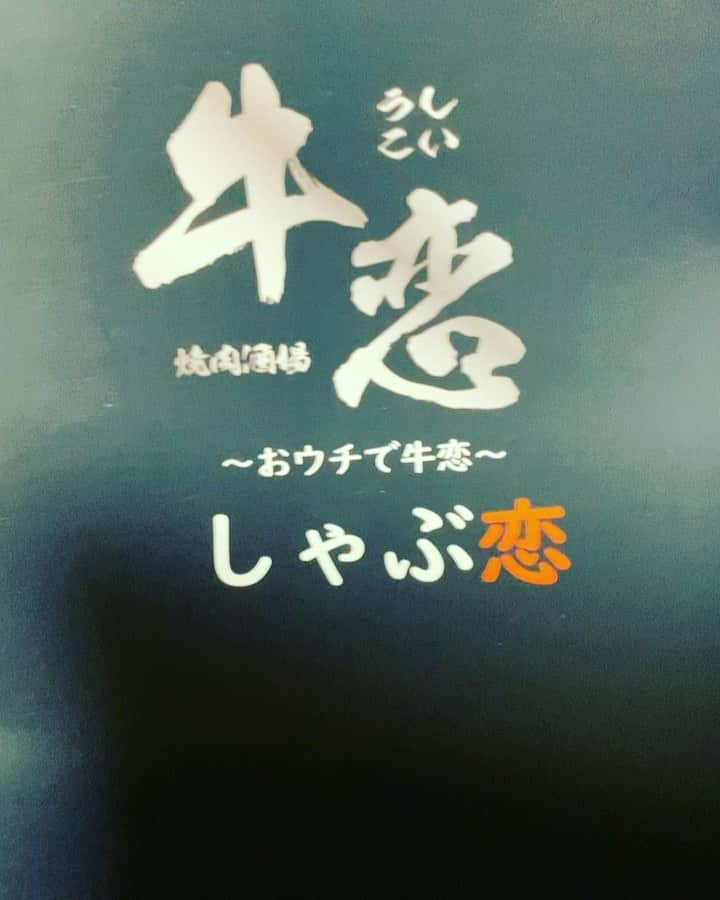 牛恋
うし
こい
焼肉酒場
～おウチで牛恋～
しゃぶ恋